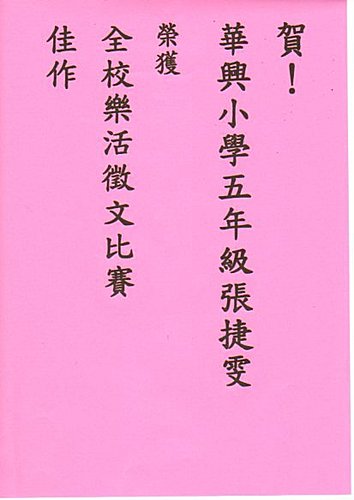 賀！
華興小學五年級張捷雯
榮獲
全校樂活徵文比賽
佳作